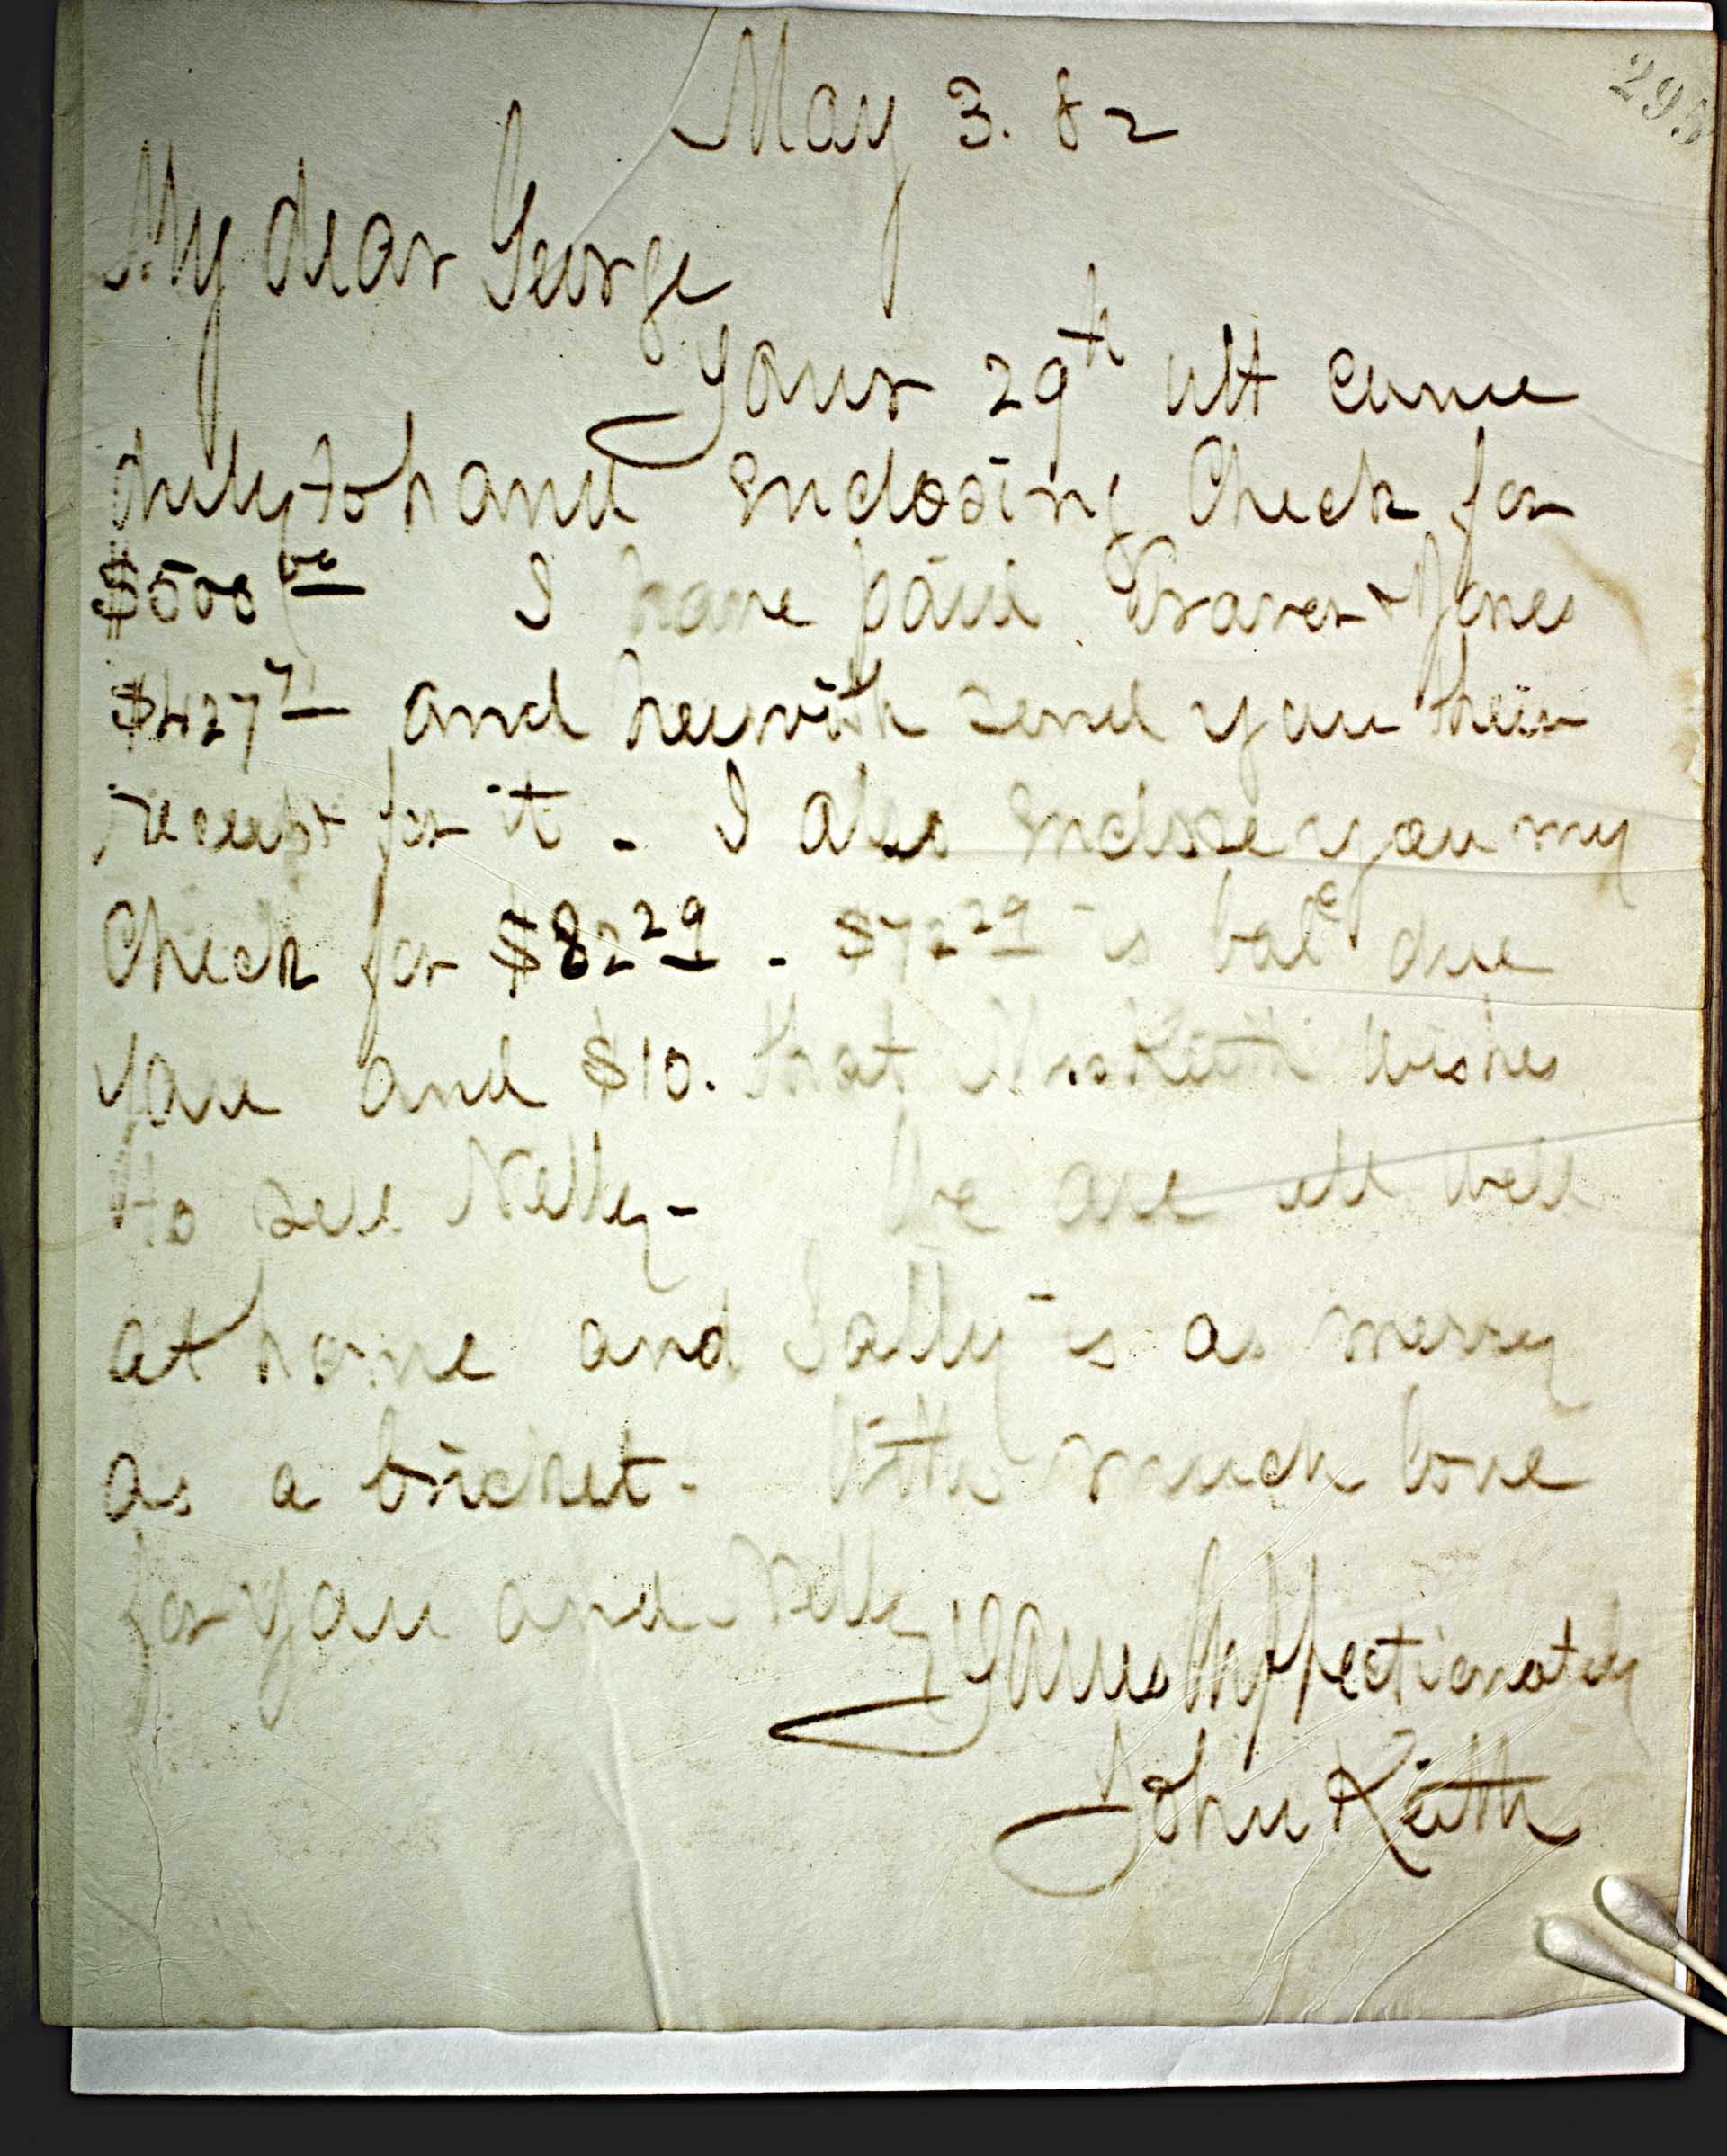 295
May 3. 82
My dear George
Yours 29th ult came
duly to hand enclosing Check for
$500 00 I have paid Graves & Jones
$427 71 and herewith send you their
receipt for it - I also enclose you my
Check for $82 29 - $72 29 is bale due
you and $10. that Mrs Keith wishes
to sell Nelly - We are all well
at home and Sally is as merry
as a cricket - With much love
for you and Nelly
Yours Affectionately
John Keith